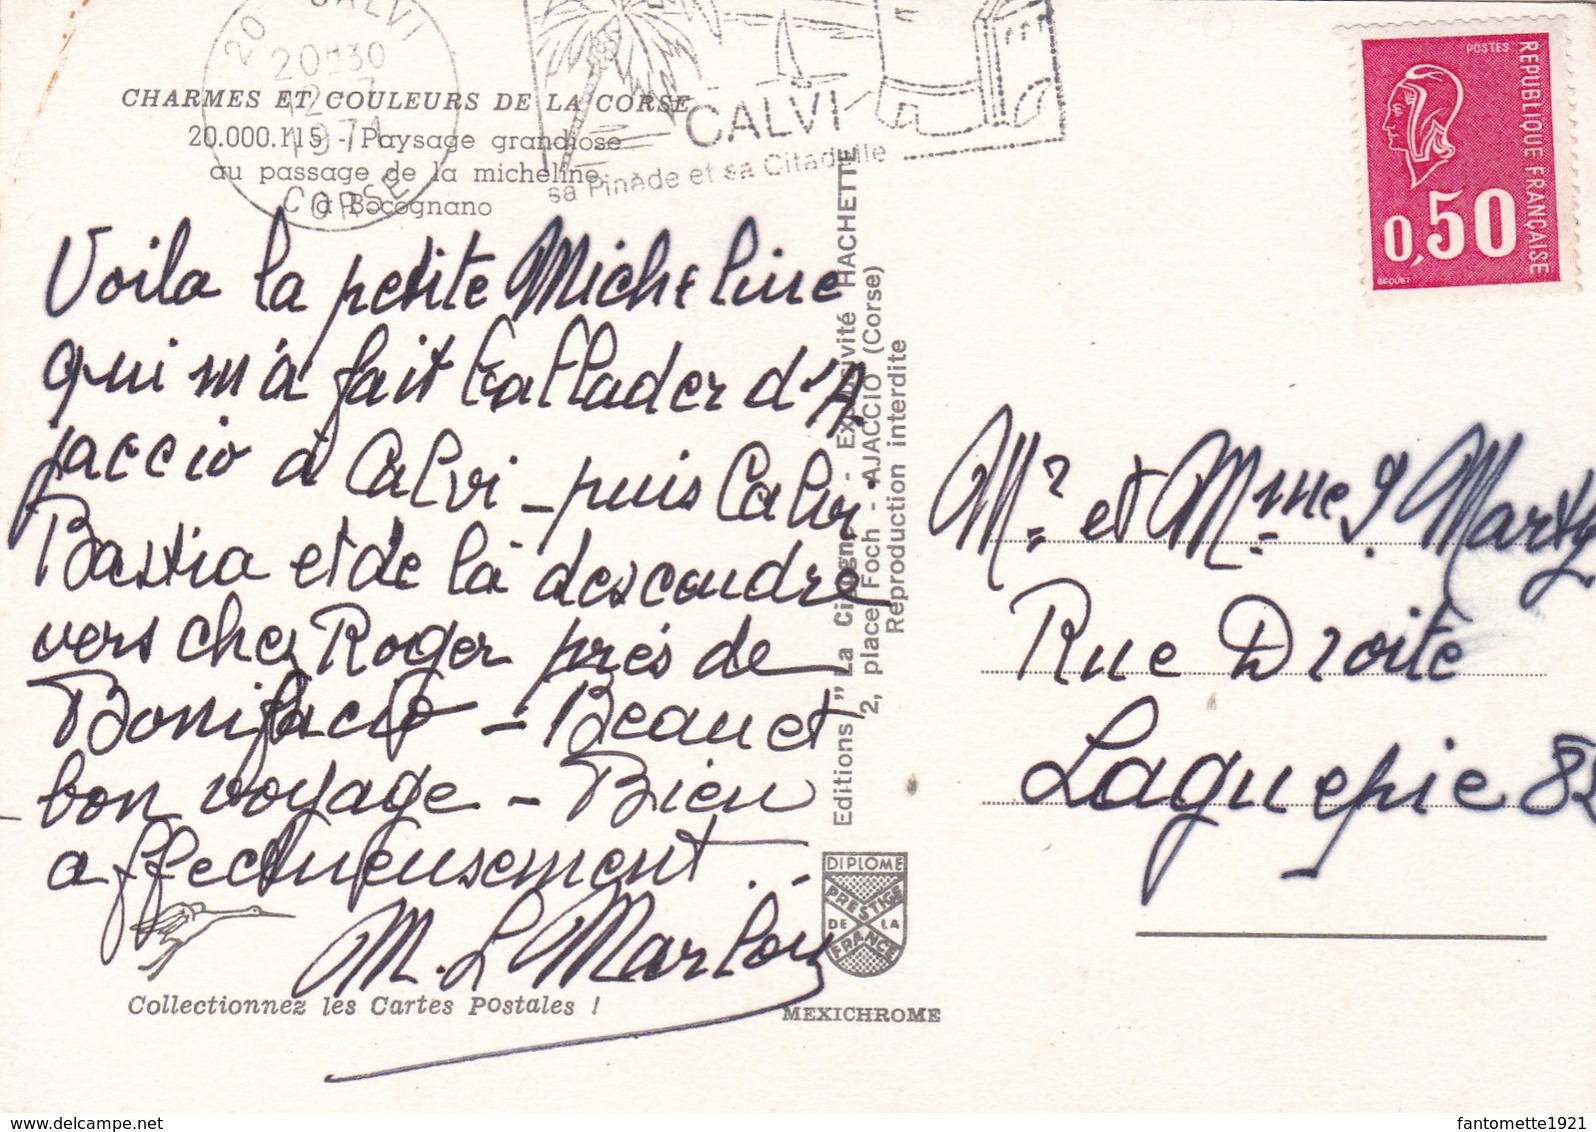 20 CALVI
20H30
12-7
1974
CORSE
CALVI
sa Pinède et sa Citadelle
CHARMES ET COULEURS DE LA CORSE
20.000.115 - Paysage grandiose
au passage de la micheline
à Bocognano
POSTES
REPUBLIQUE FRANÇAISE
0,50
BEQUET
Voila la petite Micheline
qui m'a fait ballader d'A
jaccio à Calvi - puis Calvi
Bastia et de là descendre
vers chez Roger près de
Bonifacio - Beau et
bon voyage - Bien
affectueusement
M. L Marlou
Editions "La Cigogne" - Exclusivité HACHETTE
2, place Foch - AJACCIO (Corse)
Reproduction interdite
Mr et Mme J Marty
Rue Droite
Laguepie 82
DIPLOME
PRESTIGE
DE LA
FRANCE
Collectionnez les Cartes Postales !
MEXICHROME
http://www.delcampe.net
fantomette1921